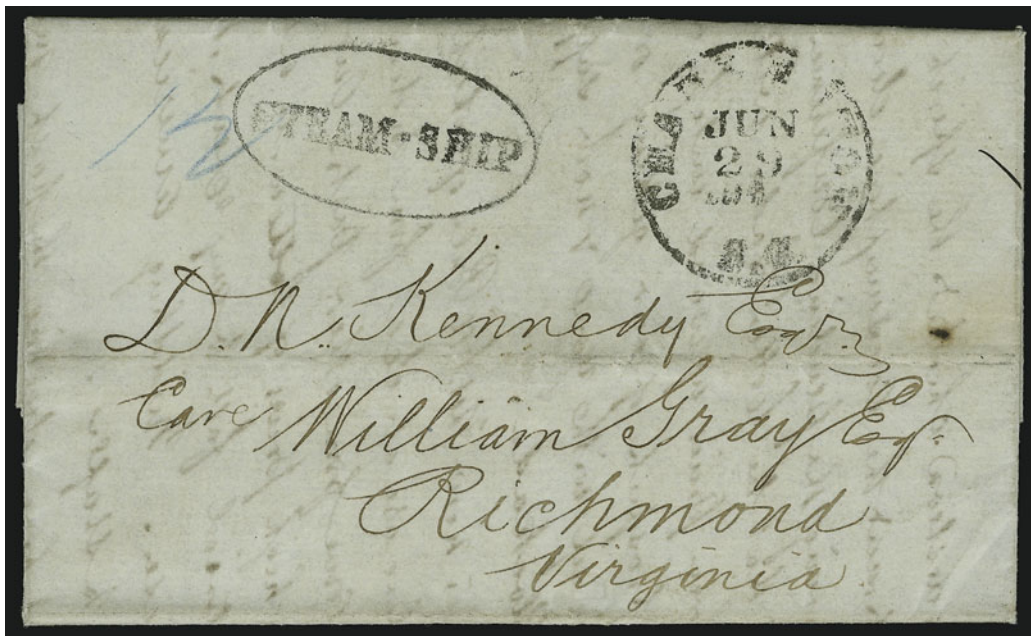 STEAM-SHIP
JUN
29
S.C.
D. N. Kennedy Esqr.
Care William Gray Esq.
Richmond
Virginia